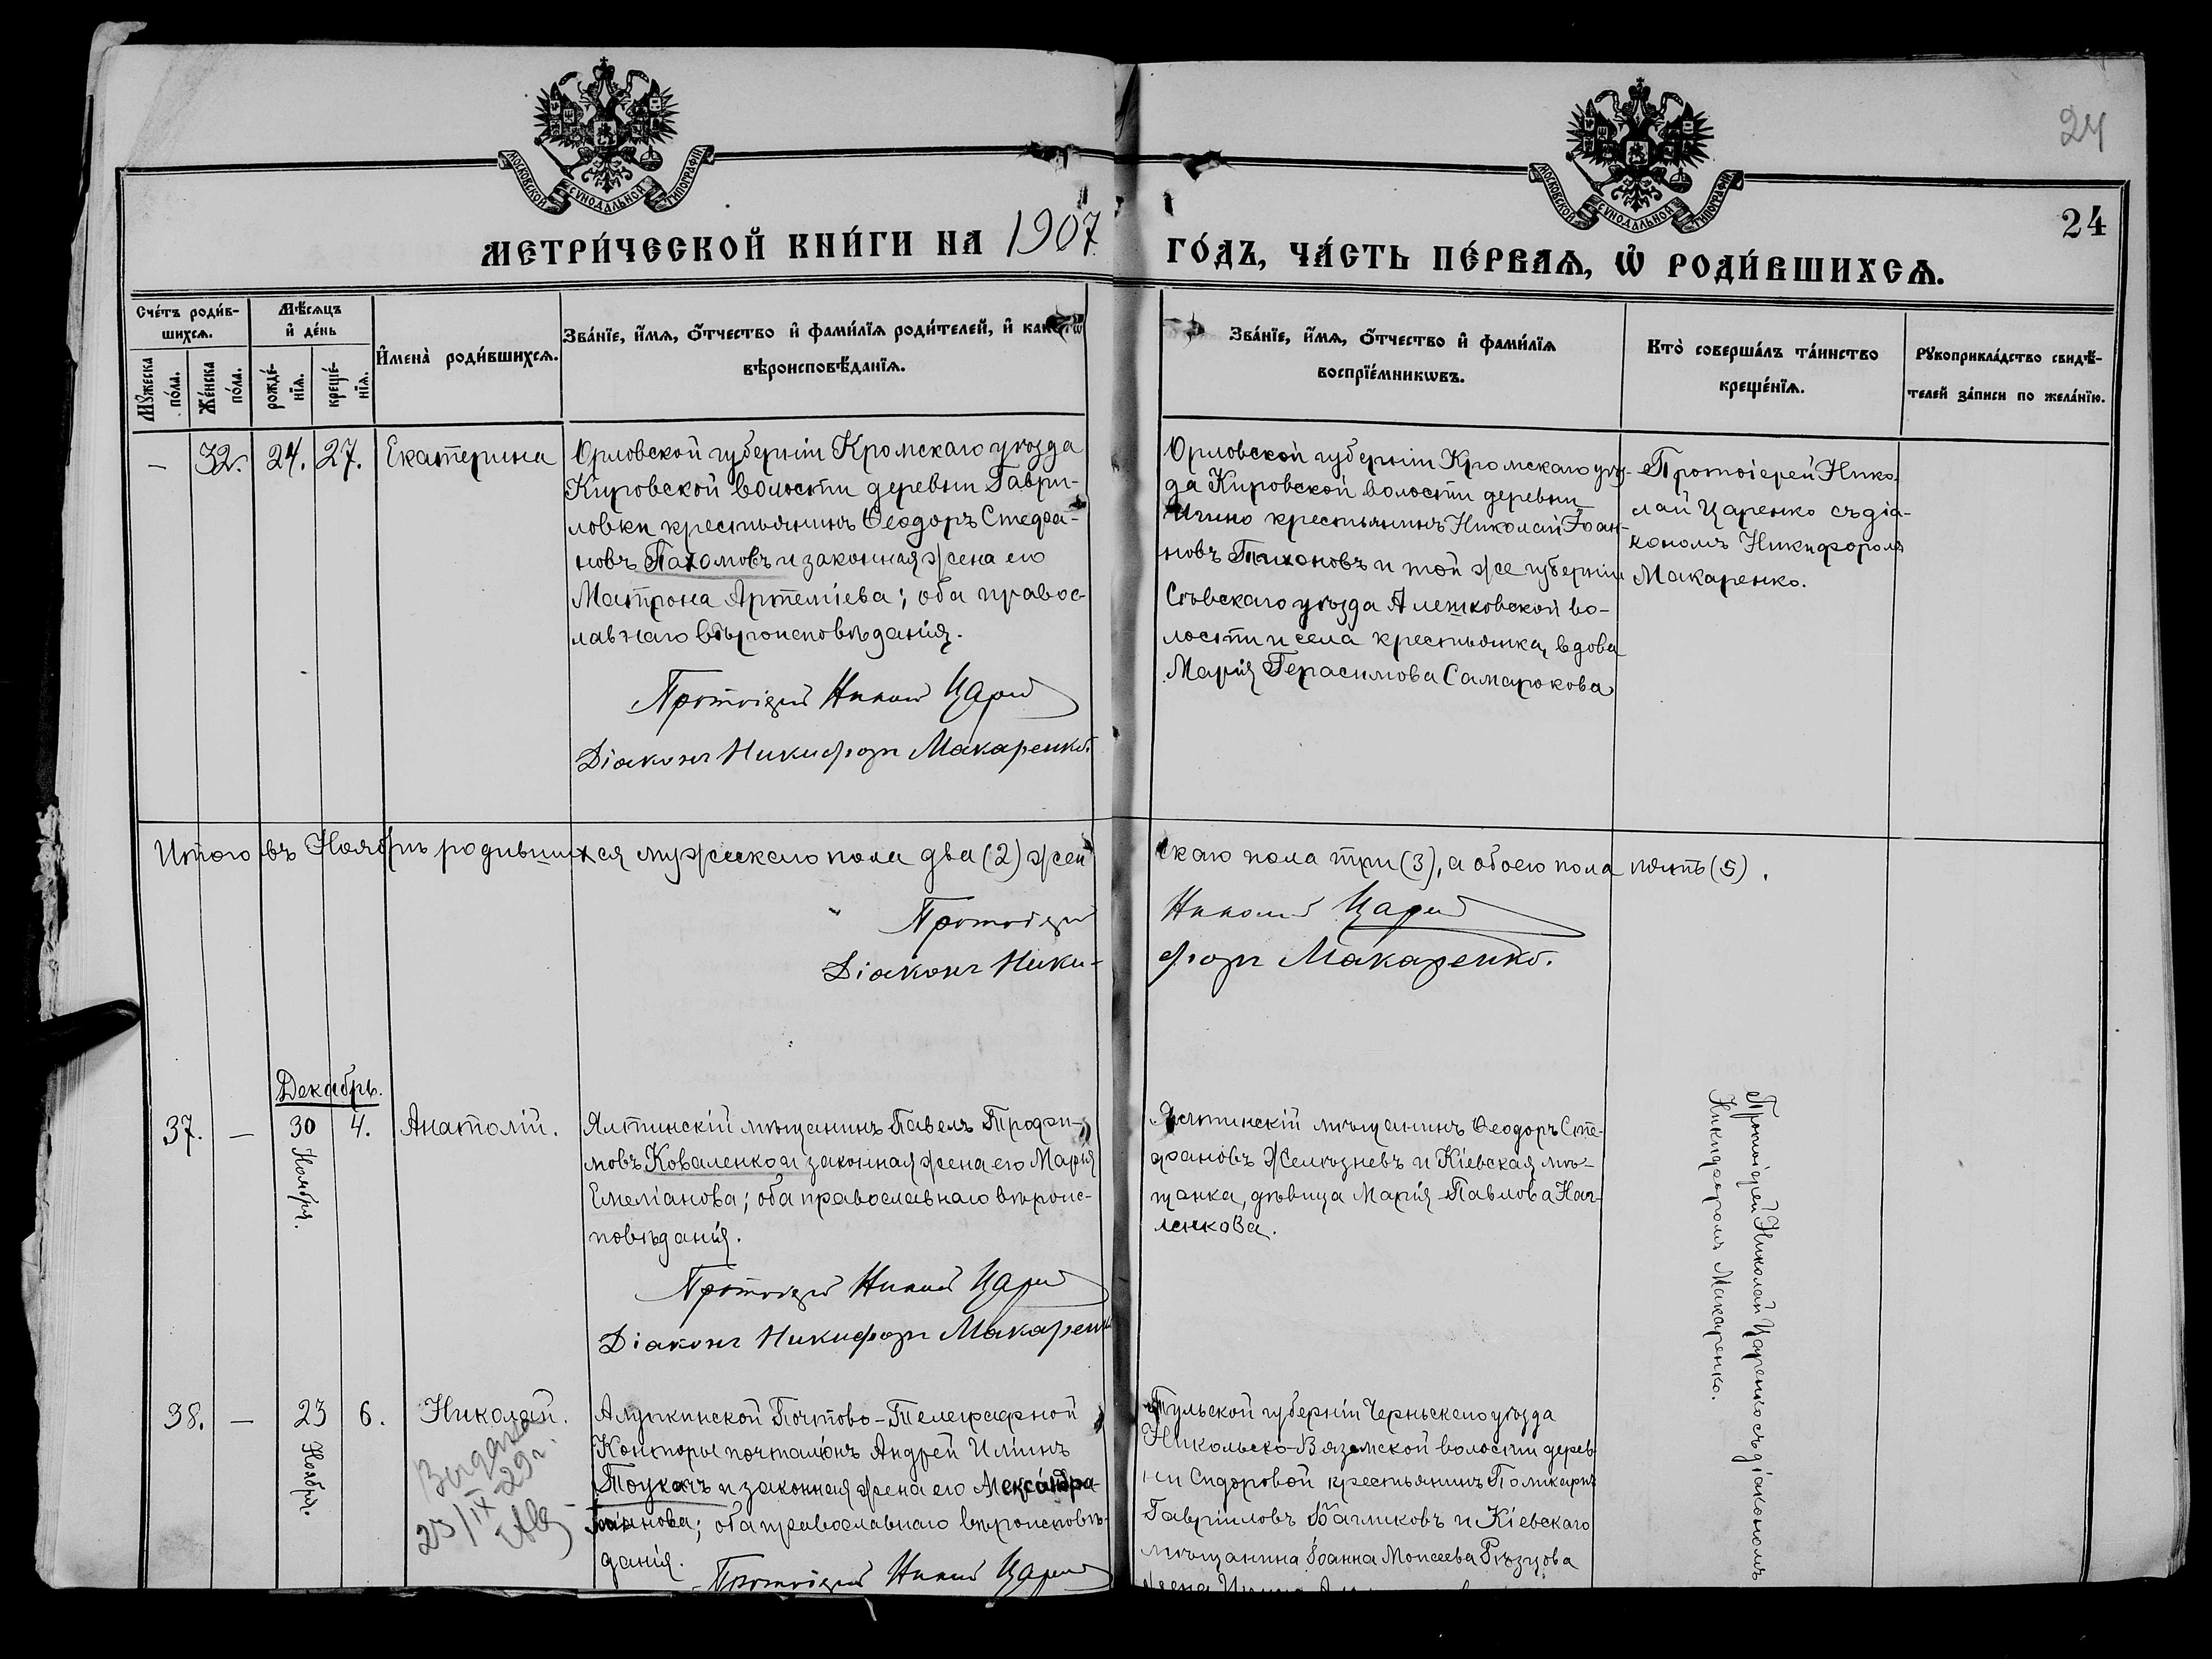 24
МОСКОВСКОЙ СѴНОДАЛЬНОЙ ТИПОГРАФІИ
МОСКОВСКОЙ СѴНОДАЛЬНОЙ ТИПОГРАФІИ
24
МЕТРИ́ЧЕСКОЙ КНИ́ГИ НА 1907 ГО́ДЪ, ЧА́СТЬ ПЕ́РВАѦ, Ѡ҆ РОДИ́ВШИХСѦ.
Сче́тъ роди́в-
шихсѧ.
Мꙋ́жеска по́ла.
Же́нска по́ла.
Мѣ́сѧцъ
и҆ де́нь
рожде́-
нїѧ.
креще́-
нїѧ.
И҆мена̀ роди́вшихсѧ.
Зва́нїе, и҆́мѧ, ѻ҆́тчество и҆ фами́лїѧ роди́телей, и҆ како́гѡ
вѣроисповѣ́данїѧ.
Зва́нїе, и҆́мѧ, ѻ҆́тчество и҆ фами́лїѧ
воспрїе́мникѡвъ.
Кто̀ соверша́лъ та́инство
креще́нїѧ.
Рꙋкоприкла́дство свидѣ́-
телей за́писи по жела́нїю.
— 32. 24. 27. Екатерина
Орловской губерніи Кромскаго уѣзда
Кировской волости деревни Гаври-
ловки крестьянинъ Ѳеодоръ Стефа-
новъ Пахомовъ и законная жена его
Матрона Артеміева; оба правос-
лавнаго вѣроисповѣданія.
Протоіерей Николай Царенко
Діаконъ Никифоръ Макаренко.
Орловской губерніи Кромскаго уѣз-
да Кировской волости деревни
Игино крестьянинъ Николай Іоан-
новъ Тихоновъ и той же губерніи
Сѣвскаго уѣзда Алешковской во-
лости и села крестьянка, вдова
Марія Герасимова Самарюкова
Протоіерей Нико-
лай Царенко съ діа-
кономъ Никифоромъ
Макаренко.
Итого въ Ноябрѣ родившихся мужескаго пола два (2) жен
скаго пола три (3), а обоего пола пять (5).
Протоіерей Николай Царенко
Діаконъ Ники-форъ Макаренко.
Декабрь.
37. — 30 Ноября. 4. Анатолій.
Ялтинскій мѣщанинъ Павелъ Трофи-
мовъ Коваленко и законная жена его Марія
Емеліанова; оба православнаго вѣроис-
повѣданія.
Протоіерей Николай Царенко
Діаконъ Никифоръ Макаренко
Ялтинскій мѣщанинъ Ѳеодоръ Сте-
фановъ Желѣзневъ и Кіевская мѣ-
щанка, дѣвица Марія Павлова
ленкова.
Протоіерей Николай Царенко съ діакономъ
Никифоромъ Макаренко.
38. — 23 Ноября. 6. Николай.
25/IX 29г.
Алупкинской Почтово-Телеграфной
Конторы почталіонъ Андрей Иліинъ
Тоукачъ и законная жена его Александра
Іоаннова; оба православнаго вѣроисповѣ-
данія.
Протоіерей Николай Царенко
Тульской губерніи Черньскаго уѣзда
Никольско-Вяземской волости дерев-
ни Сидоровой крестьянинъ Поликарпъ
Гавріиловъ Багликовъ и Кіевскаго
мѣщанина Іоанна Моисеева Рѣзцова
жена